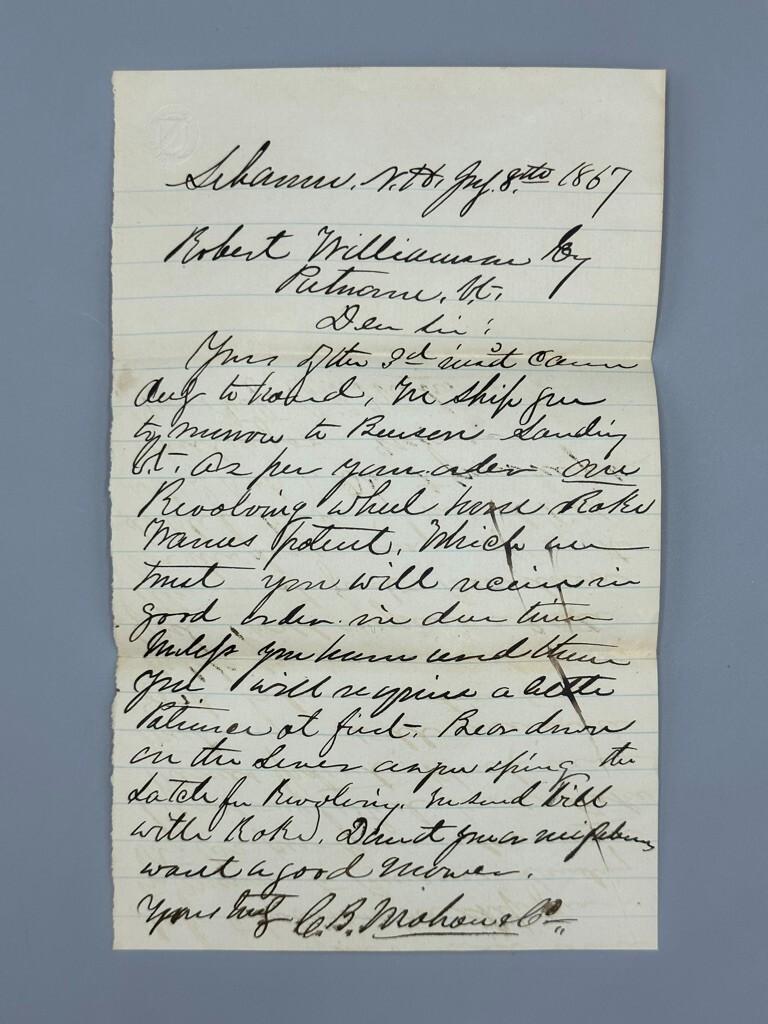 Lebanon, N.H. July 8th 1867
Robert Williamson Esq
Putnam, Vt.
Dear Sir:
Yours of the 3d inst came
duly to hand, We ship you
to morrow to Benson Landing
Vt. As per your order one
Revolving wheel horse Rake
patent, Which we
trust you will receive in
good order in due time
Unless you have used them
You will require a little
Patience at first. Bear down
on the Lever as you spring the
Latch for Revolving. We send Bill
with Rake. Don't your neighbors
want a good Mower.
Yours truly C. B. & Co.